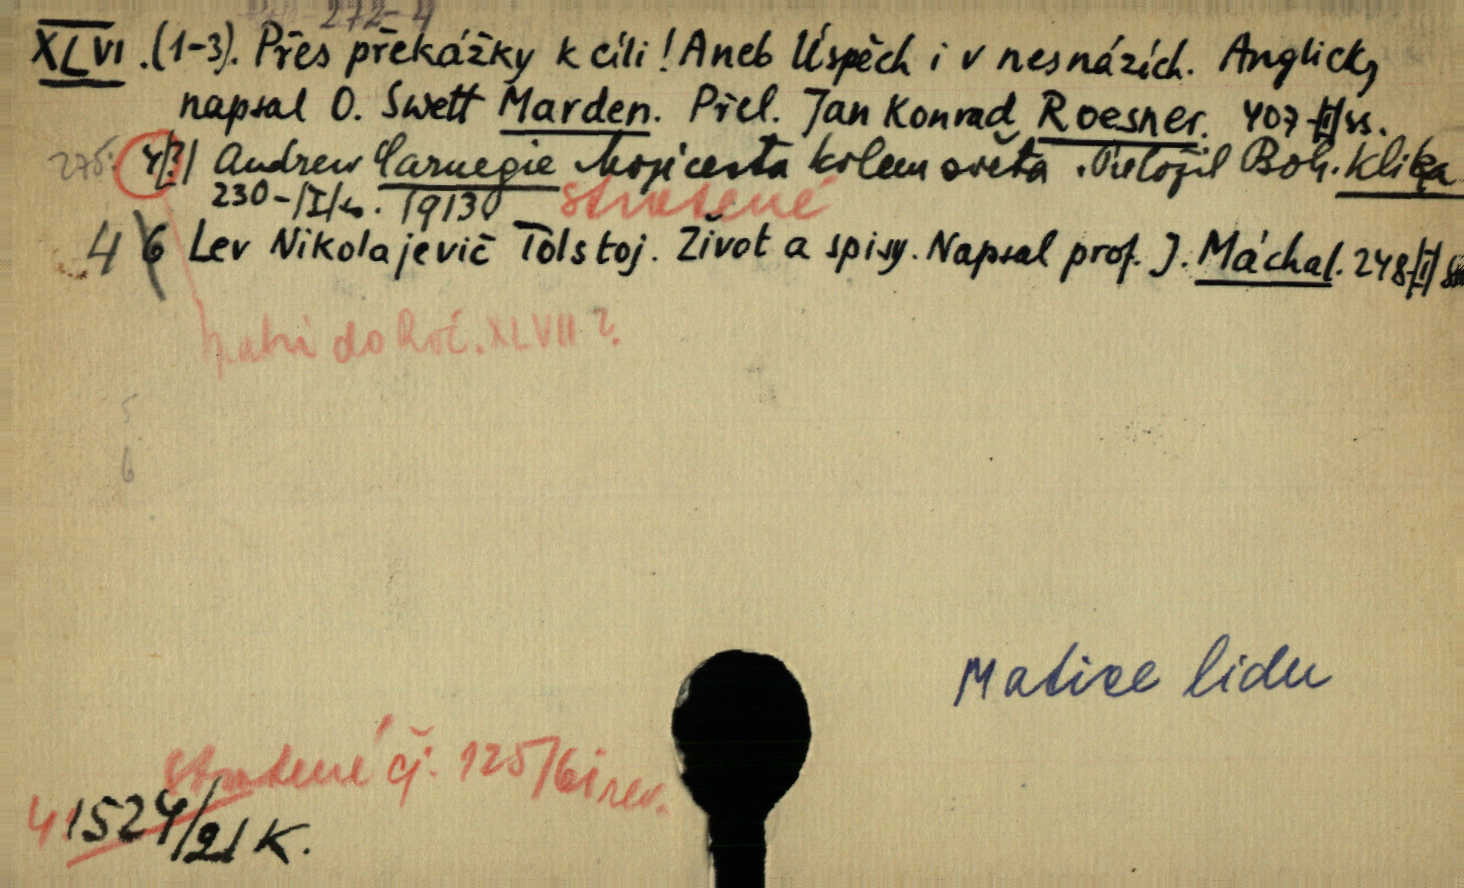 272-4
XLVI. (1-3). Přes překážky k cíli! Aneb Úspěch i v nesnázích. Anglicky
napsal O. Swett Marden. Přel. Jan Konrad Roesner. 407-[I] ss.
275: 4[?] Andrew Carnegie Moje cesta kolem světa. Přeložil Boh. Klika
230-/I/s. 1913 stratené
4 6 Lev Nikolajevič Tolstoj. Život a spisy. Napsal prof. J. Máchal. 248-[I] ss
patrí do Roč. XLVII?.
5
6
Matice lidu
stratené čj. 125/61 rev.
41524/21 K.